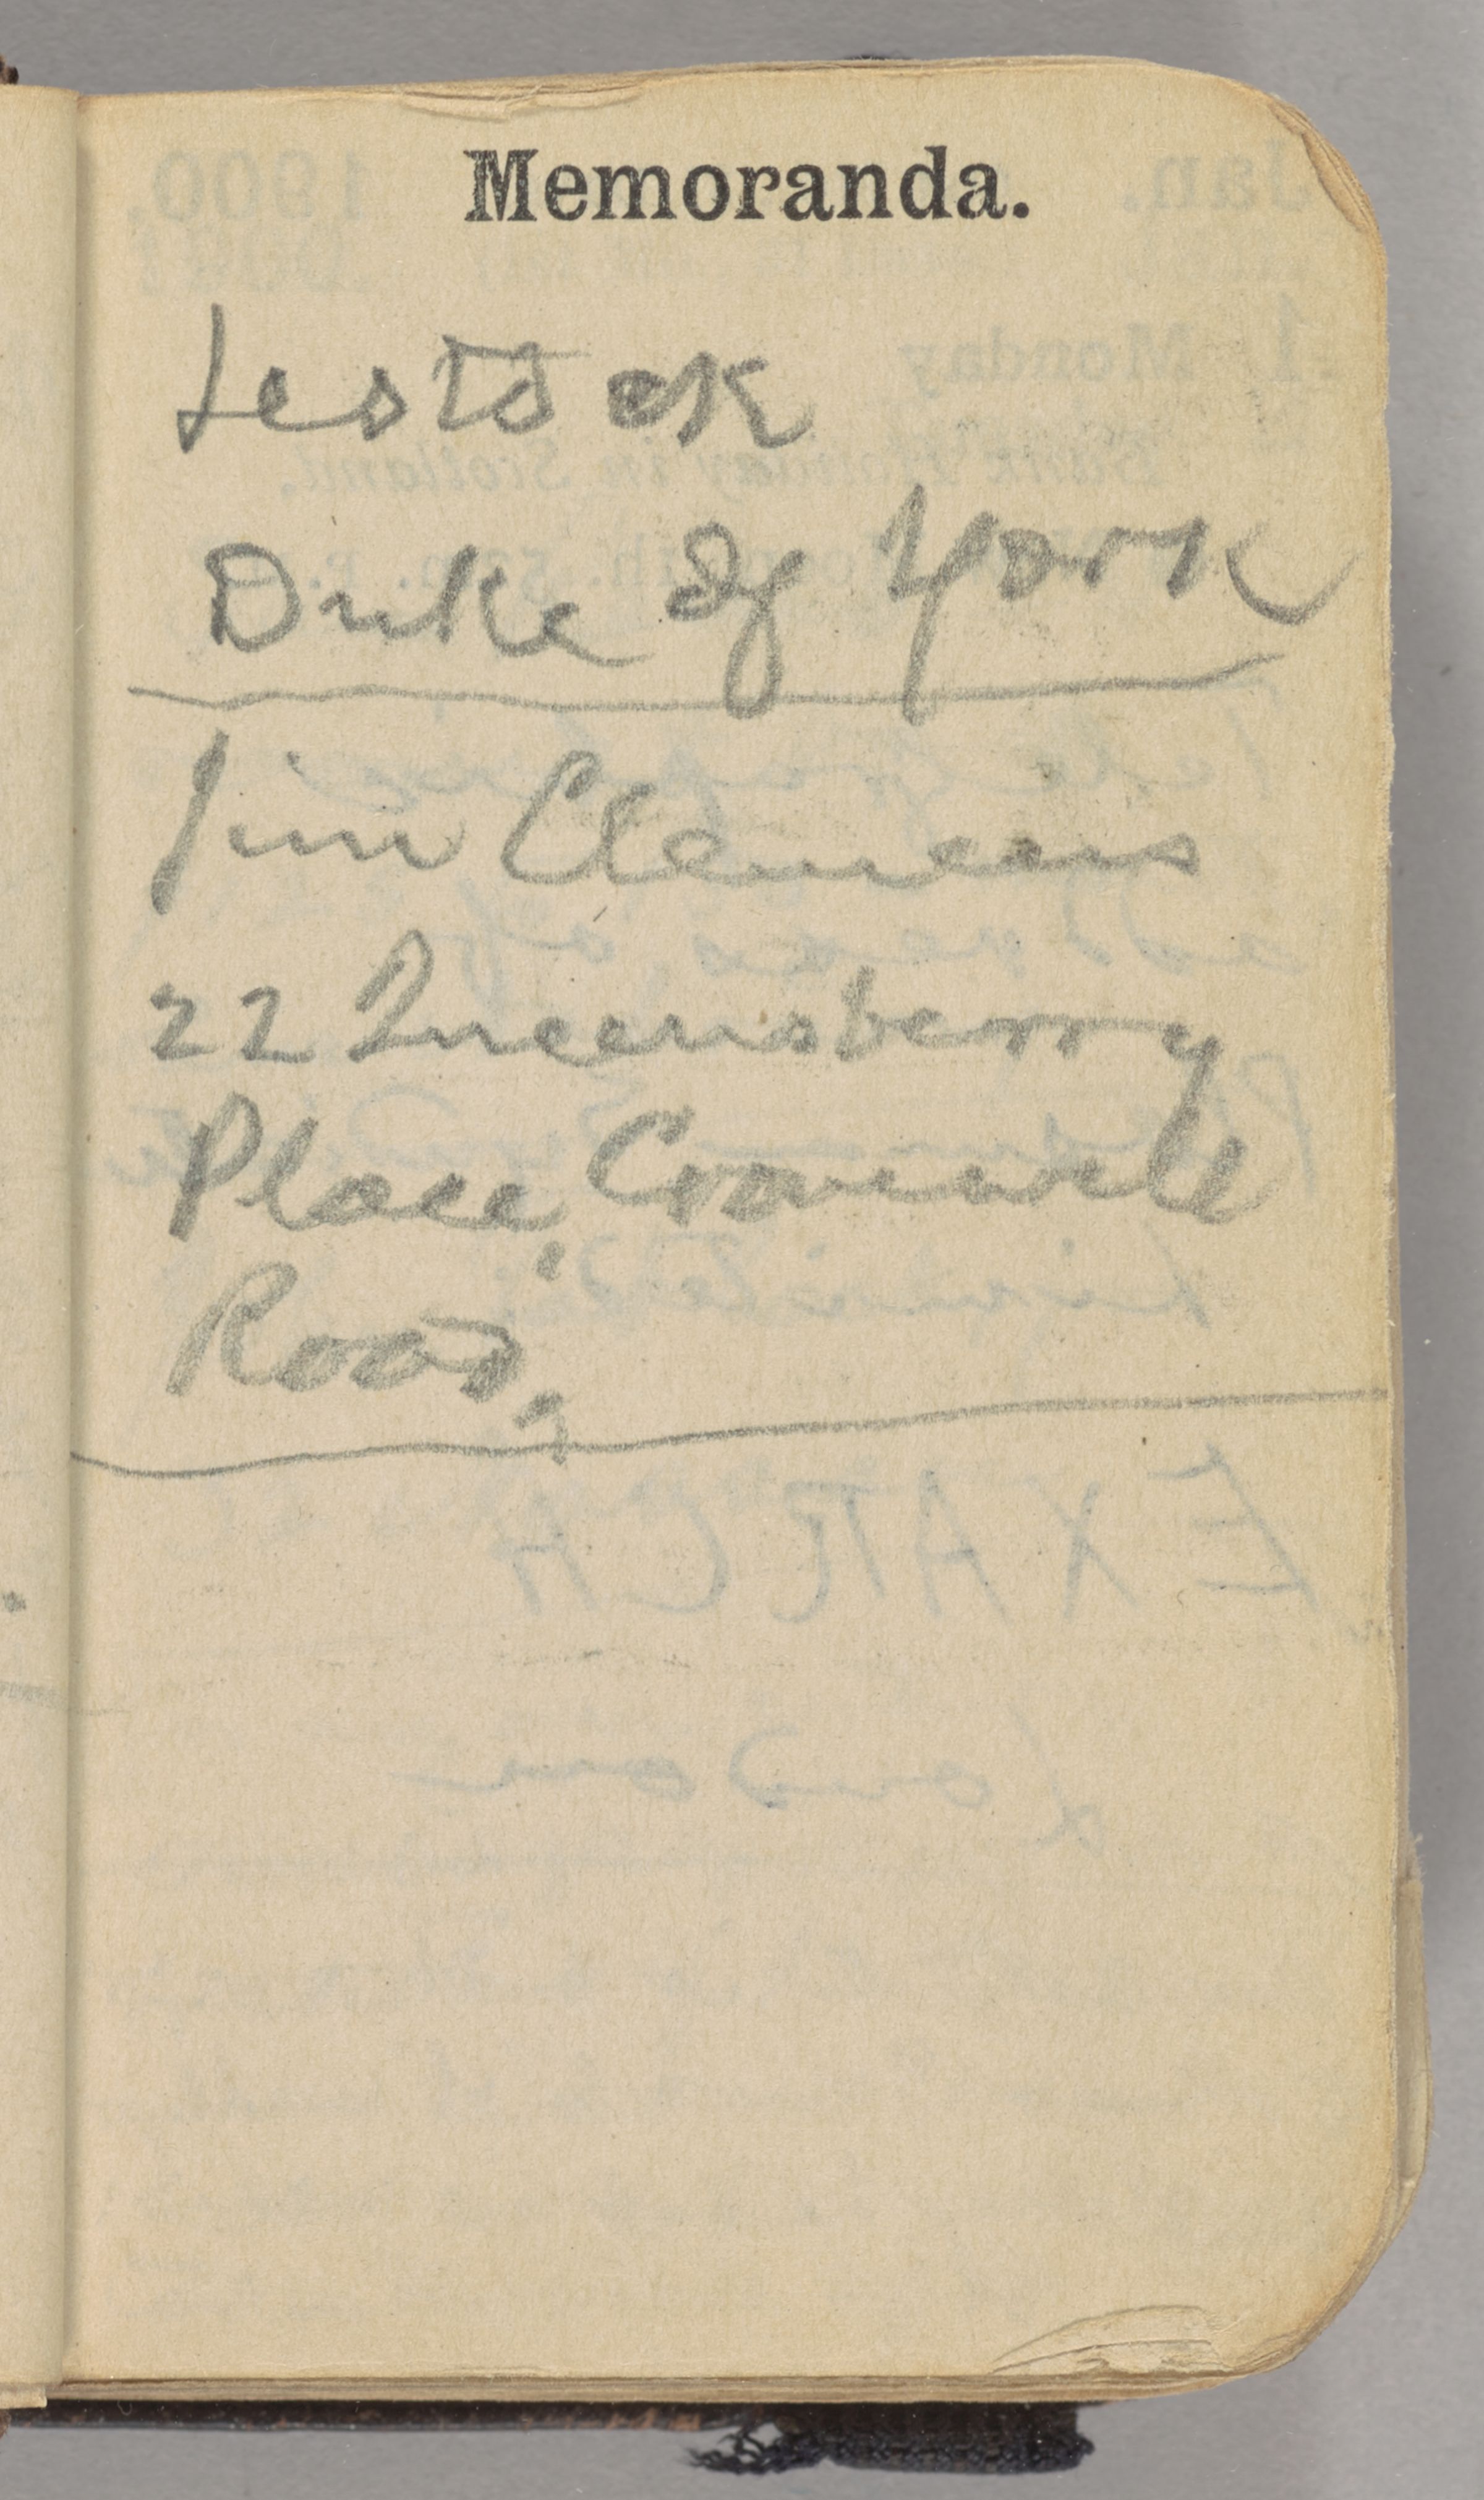 Memoranda.
Lestock
Duke of York
Jim Clemens
22 Queensberry
Place, Cromwell
Road,